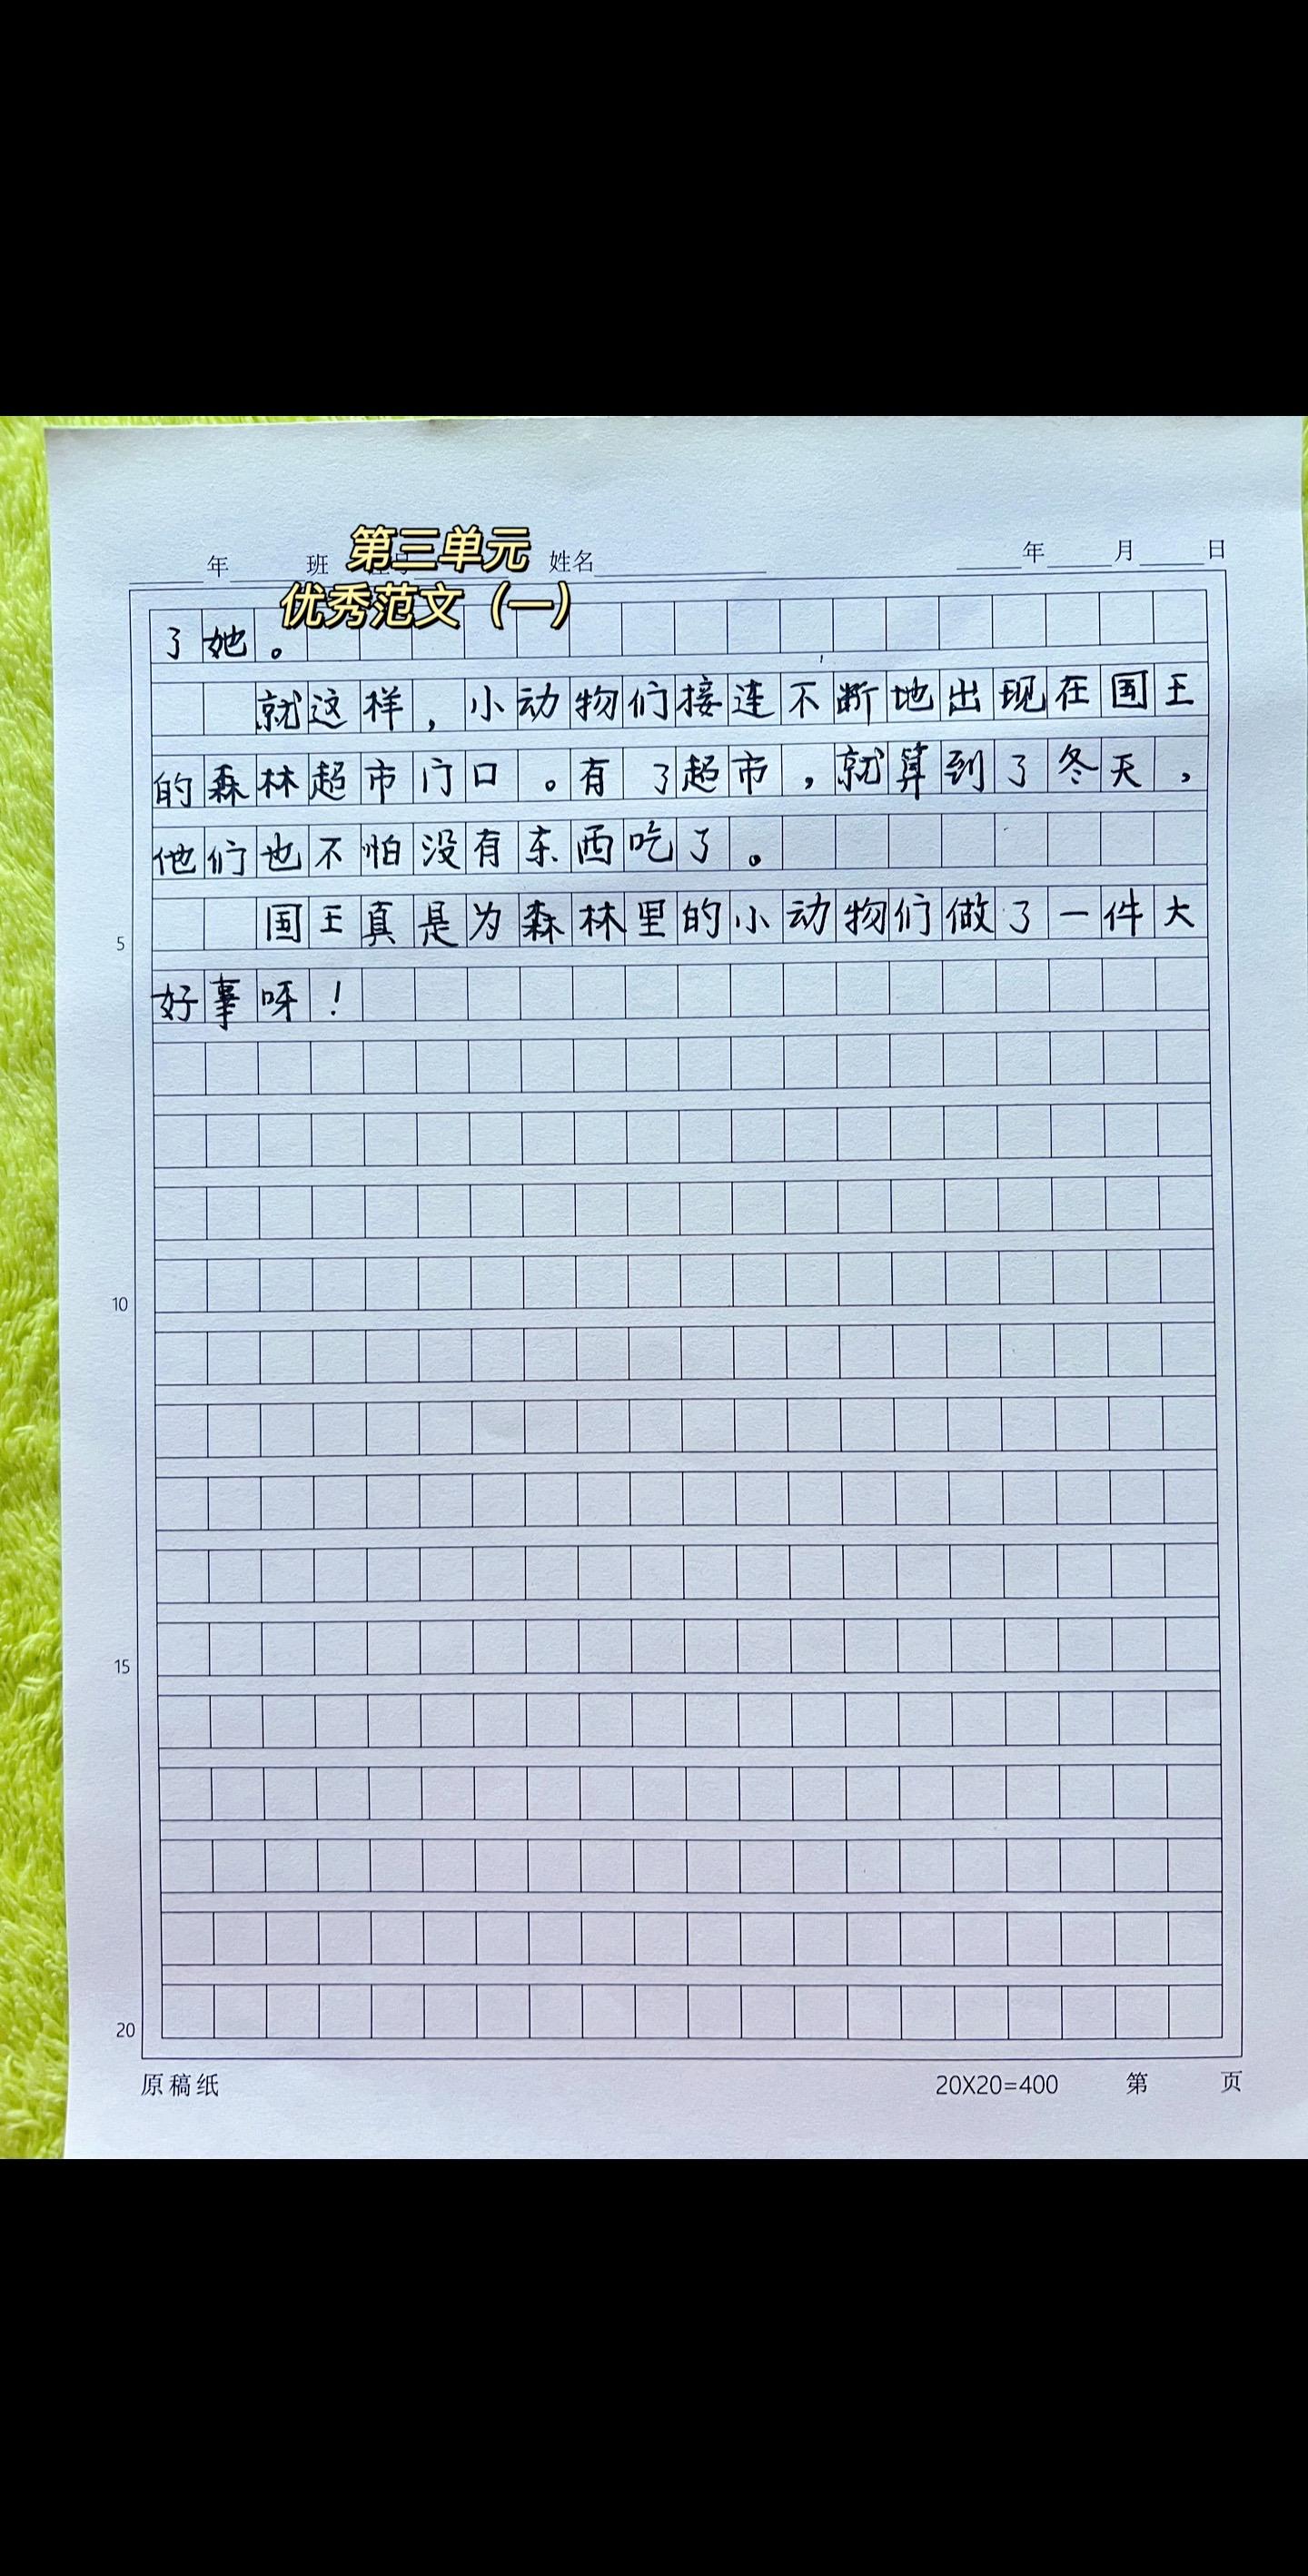 第三单元
年 班 姓名 年 月 日
优秀范文（一）
了她。
就这样，小动物们接连不断地出现在国王
的森林超市门口。有了超市，就算到了冬天，
他们也不怕没有东西吃了。
国王真是为森林里的小动物们做了一件大
5
好事呀！
10
15
20
原稿纸 20X20=400 第 页